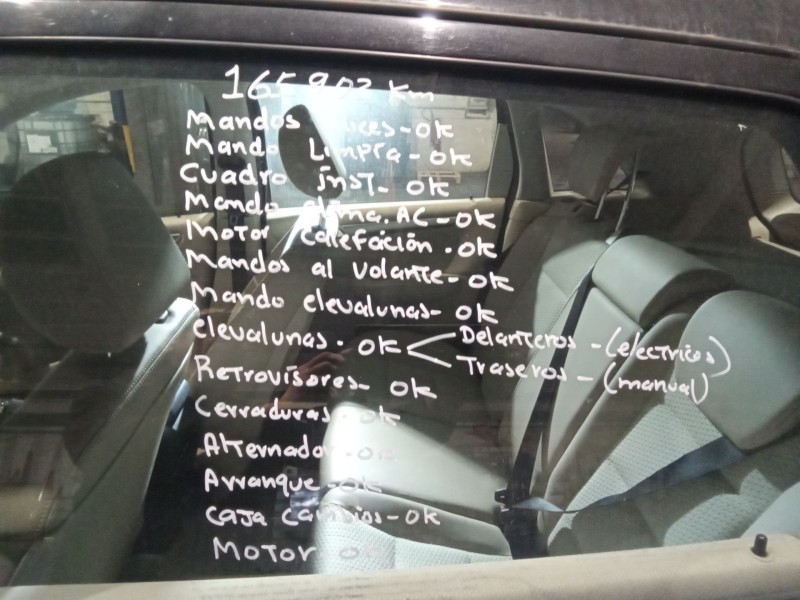 165.903 Km
Mandos luces-OK
Mando Limpia-OK
Cuadro inst-OK
Mando clima.AC-OK
Motor calefación.OK
Mandos al volante-OK
Mando elevalunas-OK
elevalunas. OK Delanteros-(electricos)
Traseros-(manual)
Retrovisores-OK
Cerraduras-OK
Alternador-OK
Arranque-OK
caja cambios-OK
Motor OK